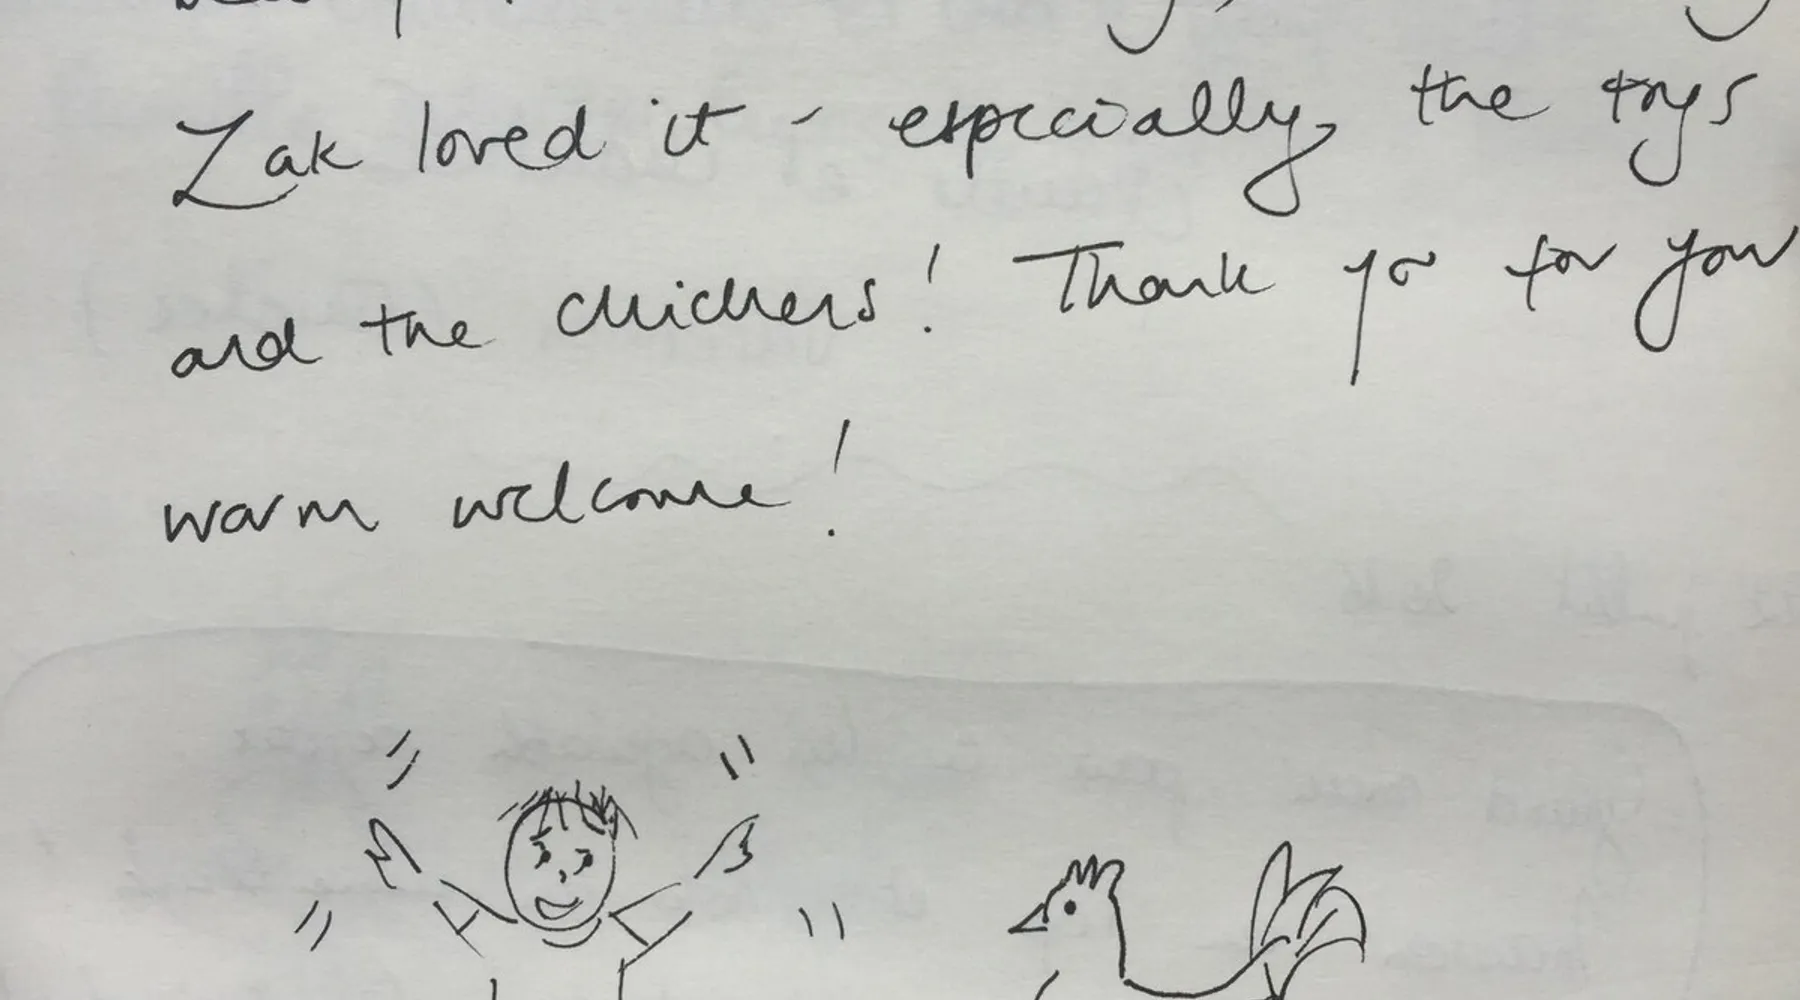 Zak loved it - especially the toys
and the chickens! Thank yo for your
warm welcome!